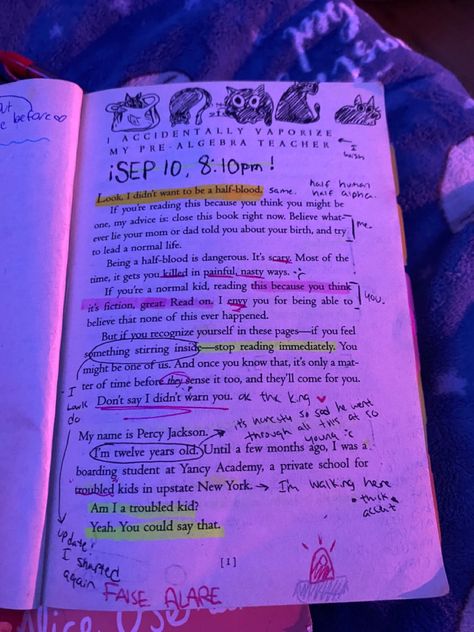 before
I ACCIDENTALLY VAPORIZE
MY PRE-ALGEBRA TEACHER
I wish
¡SEP 10, 8:10pm!
Look, I didn't want to be a half-blood. same. half human half alpha.
If you're reading this because you think you might be
one, my advice is: close this book right now. Believe what-
ever lie your mom or dad told you about your birth, and try
to lead a normal life.
me
Being a half-blood is dangerous. It's scary. Most of the
time, it gets you killed in painful, nasty ways.
If you're a normal kid, reading this because you think
it's fiction, great. Read on. I envy you for being able to
believe that none of this ever happened.
you.
But if you recognize yourself in these pages—if you feel
something stirring inside—stop reading immediately. You
might be one of us. And once you know that, it's only a mat-
ter of time before they sense it too, and they'll come for you.
Don't say I didn't warn you. ok thk king
My name is Percy Jackson. → it's honestly so sad he went through all this at so young :c
I'm twelve years old. Until a few months ago, I was a
boarding student at Yancy Academy, a private school for
troubled kids in upstate New York. → I'm walking here
*thick accent*
Am I a troubled kid?
Yeah. You could say that.
I do
update!
I started again
[1]
FALSE ALARE